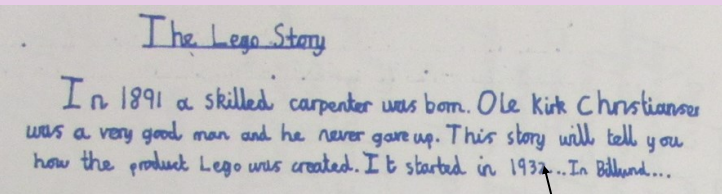 The Lego Story
In 1891 a skilled carpenter was born. Ole Kirk Christiansen
was a very good man and he never gave up. This story will tell you
how the product Lego was created. It started in 1932...In Billund...